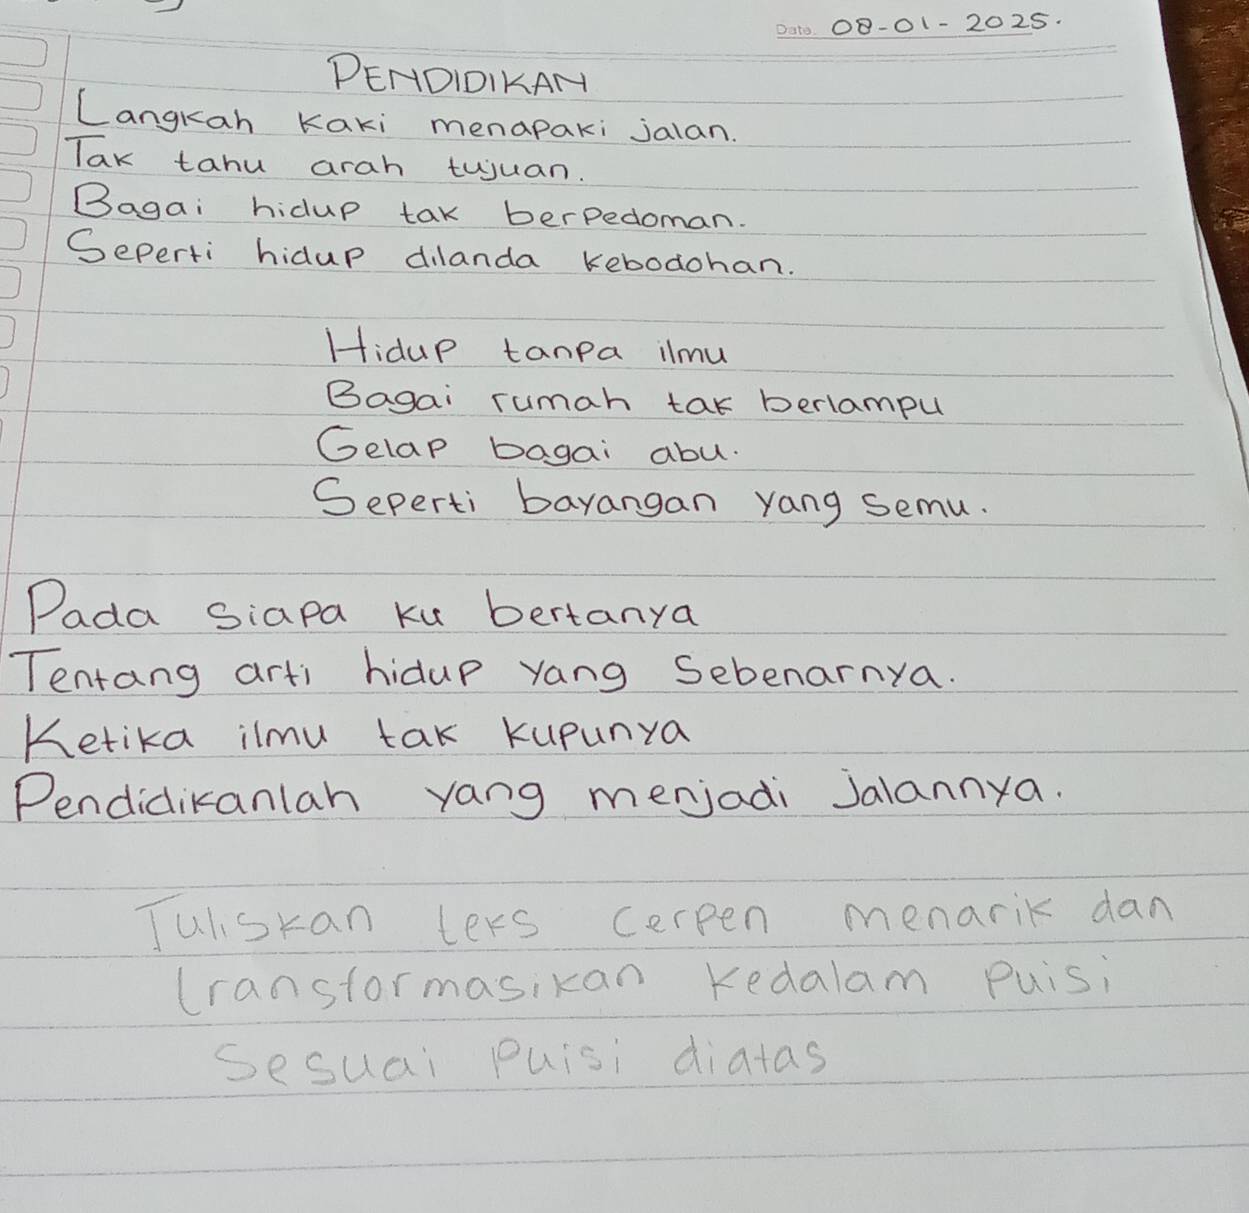 Date. 08-01-2025.
PENDIDIKAN
Langkah kaki menapaki jalan.
Tak tahu arah tujuan.
Bagai hidup tak berpedoman.
Seperti hidup dilanda kebodohan.
Hidup tanpa ilmu
Bagai rumah tak berlampu
Gelap bagai abu.
Seperti bayangan yang semu.
Pada siapa ku bertanya
Tentang arti hidup yang sebenarnya.
Ketika ilmu tak kupunya
Pendidikanlah yang menjadi jalannya.
Tuliskan teks cerpen menarik dan
transformasikan kedalam puisi
sesuai puisi diatas